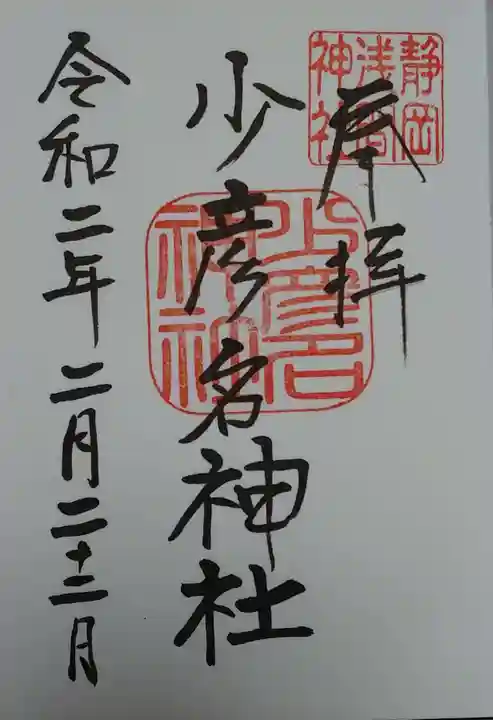 静岡
浅間
神社
奉拝
少彦名神社
少彦名
令和二年二月二十二日